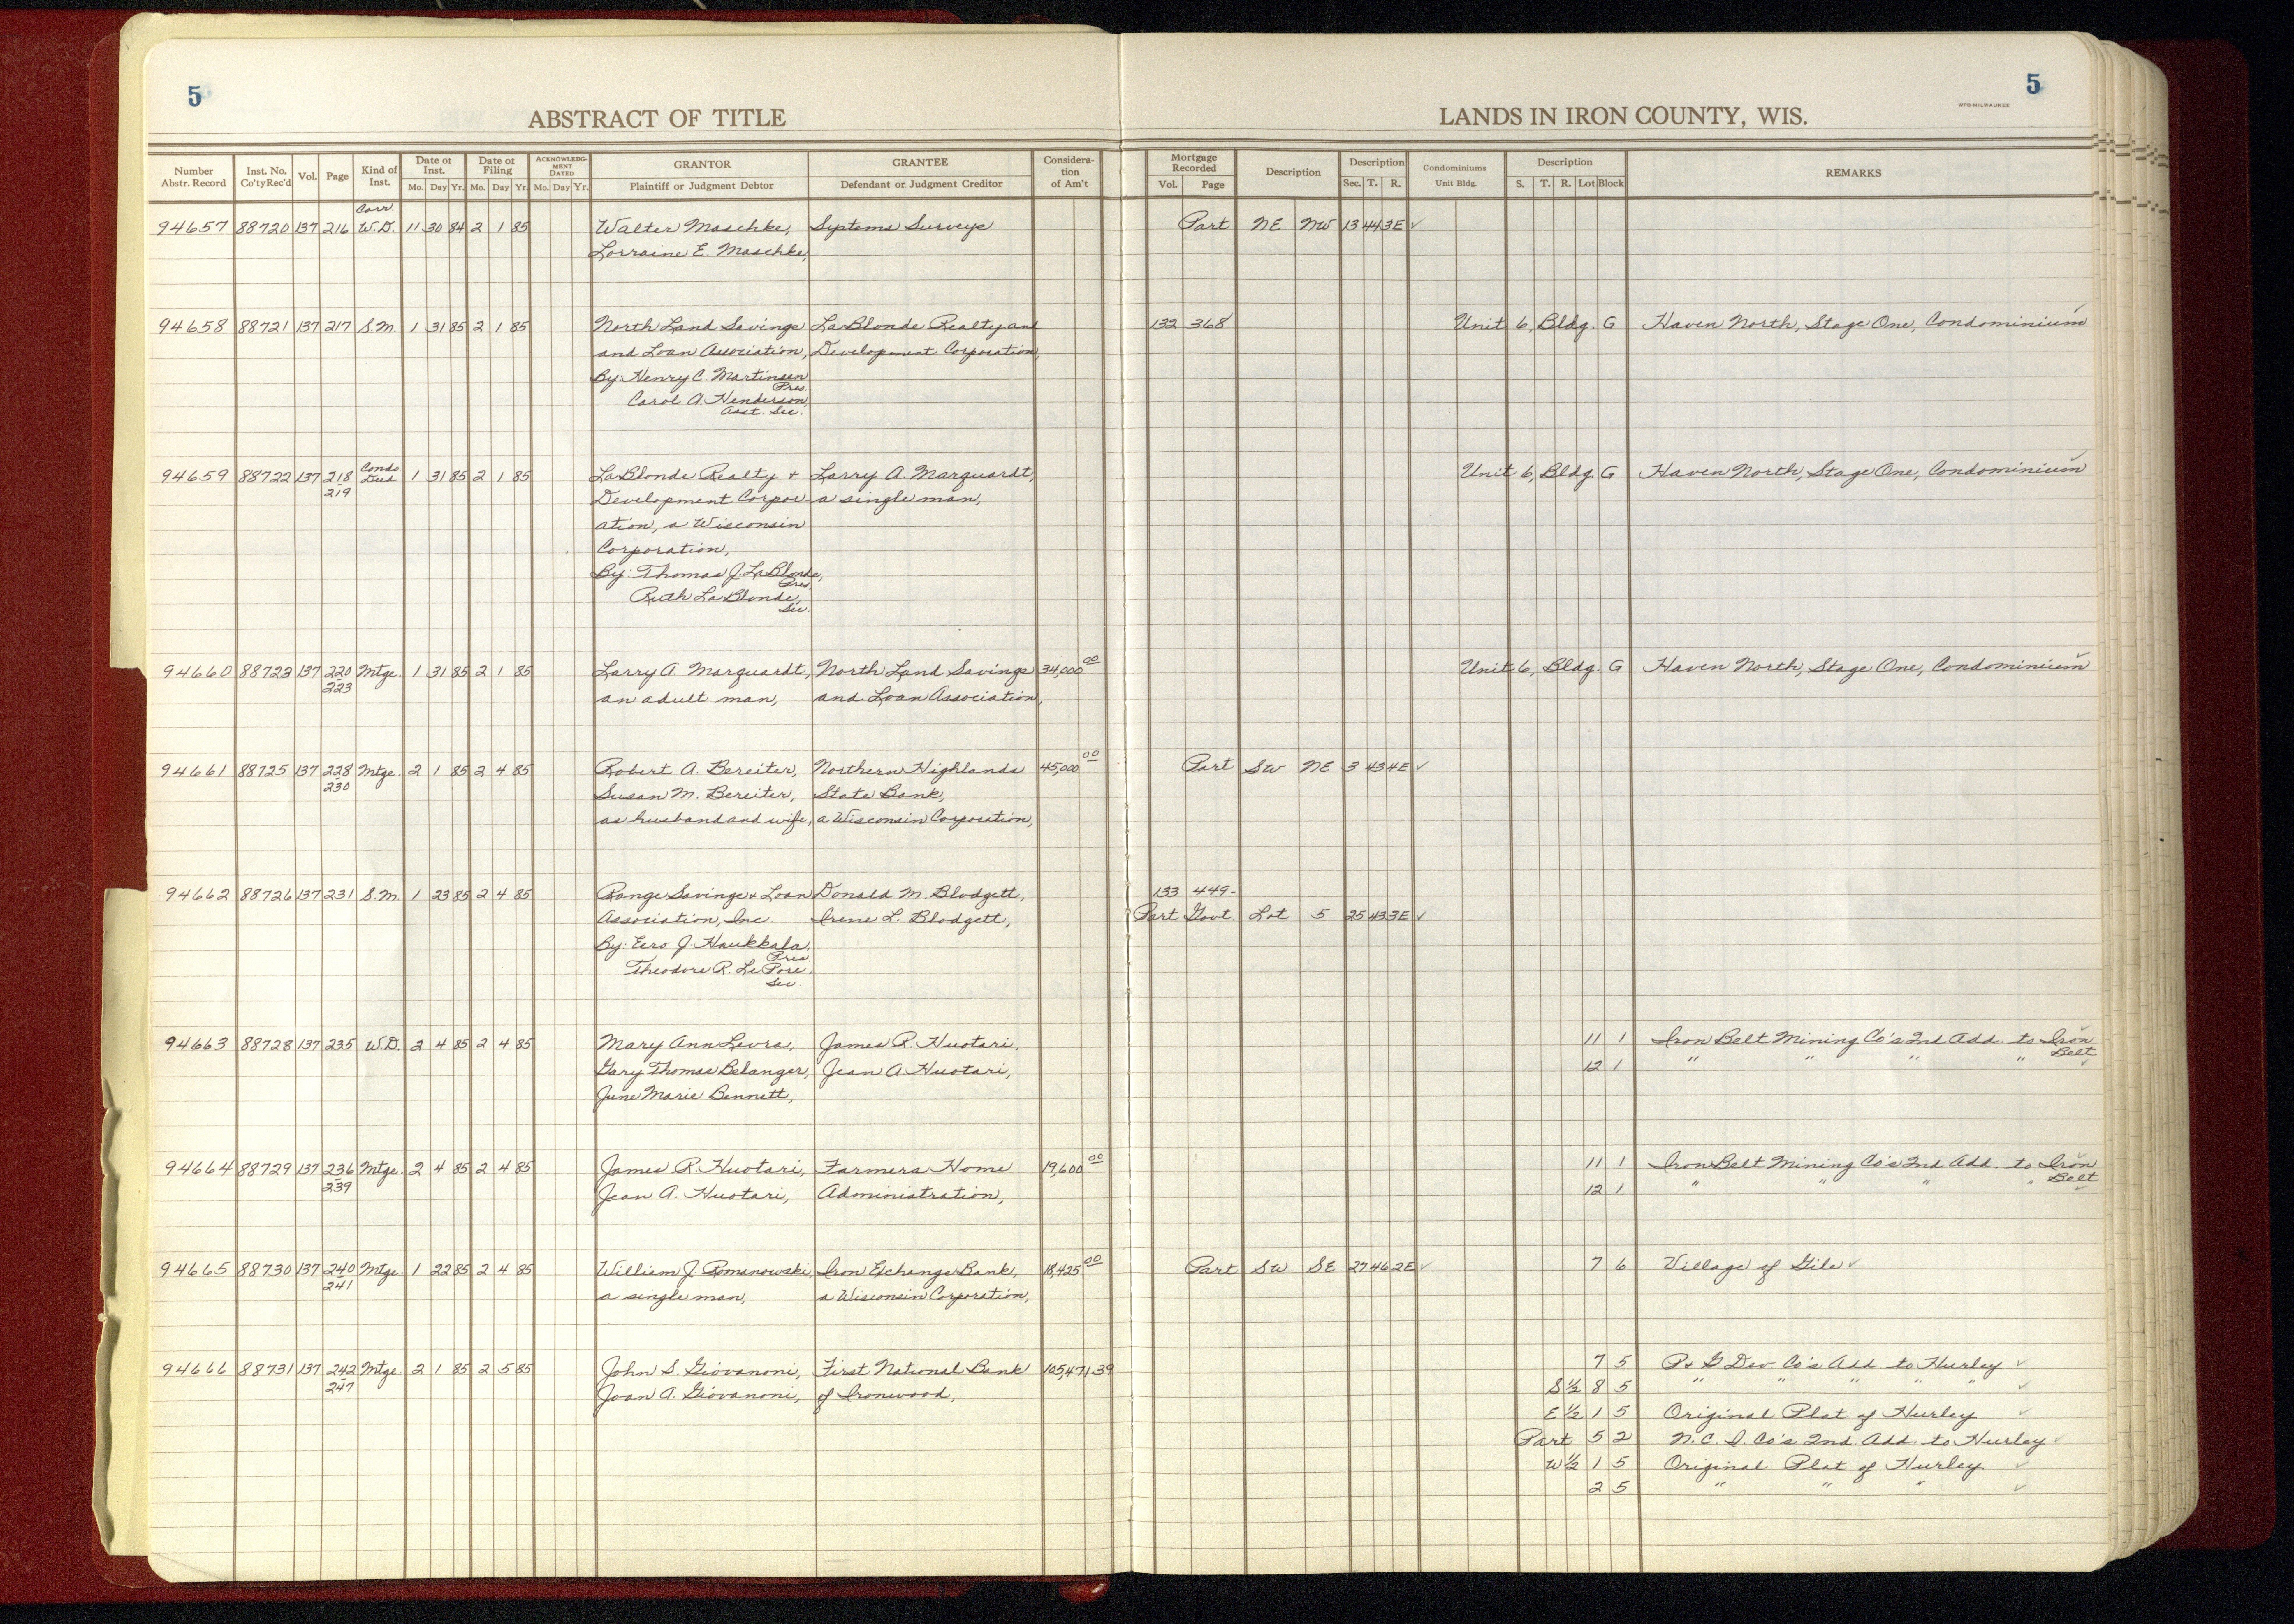 5
5
ABSTRACT OF TITLE
LANDS IN IRON COUNTY, WIS.
WPB-MILWAUKEE
Number Abstr. Record | Inst. No. Co'ty Rec'd | Vol. | Page | Kind of Inst. | Date of Inst. Mo. Day Yr. | Date of Filing Mo. Day Yr. | ACKNOWLEDGMENT DATED Mo. Day Yr. | GRANTOR Plaintiff or Judgment Debtor | GRANTEE Defendant or Judgment Creditor | Consideration of Am't | Mortgage Recorded Vol. Page | Description | Description Sec. T. R. | Condominiums Unit Bldg. | Description S. T. R. Lot Block | REMARKS
Corr.
94657 88720 137 216 W.D. 11 30 84 2 1 85 Walter Maschke, Systems Surveys Part NE NW 13 44 3E ✓
Lorraine E. Maschke,
94658 88721 137 217 S.M. 1 31 85 2 1 85 North Land Savings LaBlonde Realty and 132 368 Unit 6, Bldg. G Haven North, Stage One, Condominium ✓
and Loan Association, Development Corporation,
By: Henry C. Martinsen
Pres.
Carol A. Henderson,
Asst. Sec.
Condo
94659 88722 137 218 Deed 1 31 85 2 1 85 LaBlonde Realty + Larry A. Marquardt, Unit 6, Bldg. G Haven North, Stage One, Condominium ✓
219 Development Corpor- a single man,
ation, a Wisconsin
Corporation,
By: Thomas J. LaBlonde,
Pres.
Ruth LaBlonde,
Sec.
94660 88723 137 220 Mtge. 1 31 85 2 1 85 Larry A. Marquardt, North Land Savings 34,000 00 Unit 6, Bldg. G Haven North, Stage One, Condominium ✓
223 an adult man, and Loan Association,
94661 88725 137 228 Mtge. 2 1 85 2 4 85 Robert A. Bereiter, Northern Highlands 45,000 00 Part SW NE 3 43 4E ✓
230 Susan M. Bereiter, State Bank,
as husband and wife, a Wisconsin Corporation,
94662 88726 137 231 S.M. 1 23 85 2 4 85 Range Savings + Loan Donald M. Blodgett, 133 449-
Association, Inc. Irene L. Blodgett, Part Govt. Lot 5 25 43 3E ✓
By: Eero J. Haukkala,
Pres.
Theodore R. LePore,
Sec.
94663 88728 137 235 W.D. 2 4 85 2 4 85 Mary Ann Levra, James R. Huotari, 11 1 Iron Belt Mining Co's 2nd Add. to Iron Belt ✓
Gary Thomas Belanger, Jean A. Huotari, 12 1 " " " " ✓
June Marie Bennett,
94664 88729 137 236 Mtge. 2 4 85 2 4 85 James R. Huotari, Farmers Home 19,600 00 11 1 Iron Belt Mining Co's 2nd Add. to Iron Belt ✓
239 Jean A. Huotari, Administration, 12 1 " " " " ✓
94665 88730 137 240 Mtge. 1 22 85 2 4 85 William J. Romanowski, Iron Exchange Bank, 18,425 00 Part SW SE 27 46 2E ✓ 7 6 Village of Gile ✓
241 a single man, a Wisconsin Corporation,
94666 88731 137 242 Mtge. 2 1 85 2 5 85 John S. Giovanoni, First National Bank 105,471 39 7 5 P + G Dev Co's Add. to Hurley ✓
247 Joan A. Giovanoni, of Ironwood, S½ 8 5 " " " " " ✓
E½ 1 5 Original Plat of Hurley ✓
Part 5 2 N.C.I. Co's 2nd. Add. to Hurley ✓
W½ 1 5 Original Plat of Hurley ✓
2 5 " " " ✓